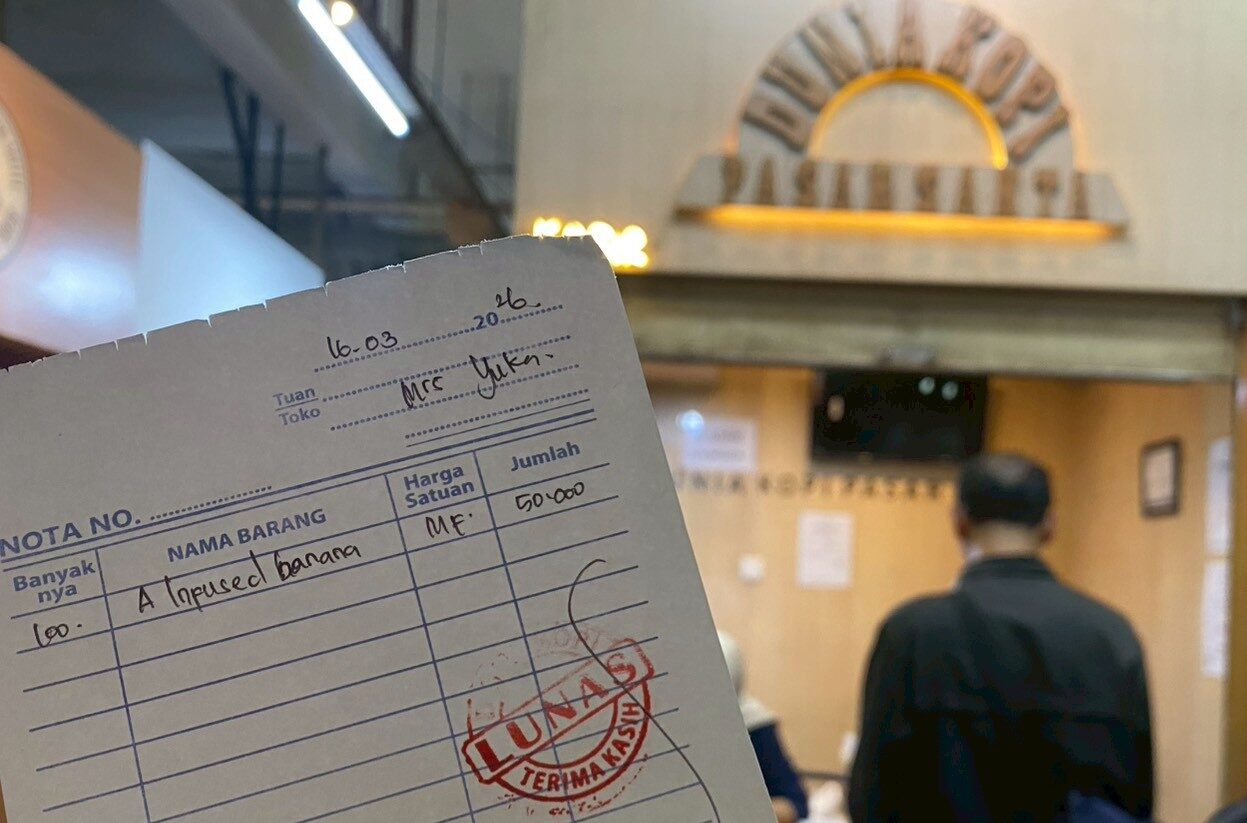 DUNIA KOPI
PASAR SANTA
16-03 2026.
Tuan
Toko
Mrs Yuka.
NOTA NO.
Banyak
nya
NAMA BARANG
Harga
Satuan
Jumlah
100.
A Infused banana
MF.
50.000
LUNAS
TERIMA KASIH